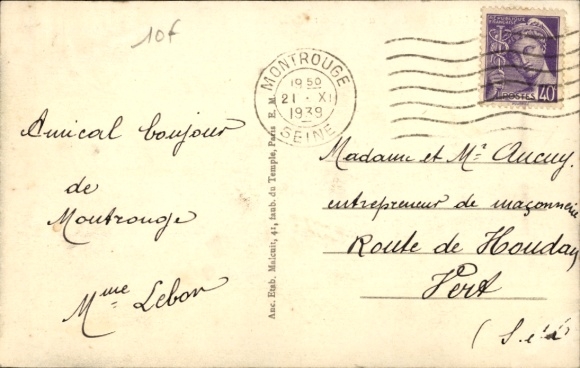 10f
RÉPUBLIQUE
FRANÇAISE
POSTES 40c
MONTROUGE
19 50
21 - XI
1939
SEINE
Amical bonjour
de
Montrouge
Mme Lebon
Anc. Etab. Malcuit, 41, faub. du Temple, Paris E. M.
Madame et Mr Aucuy
entrepreneur de maçonnerie
Route de Houdan
Vert
(S. et